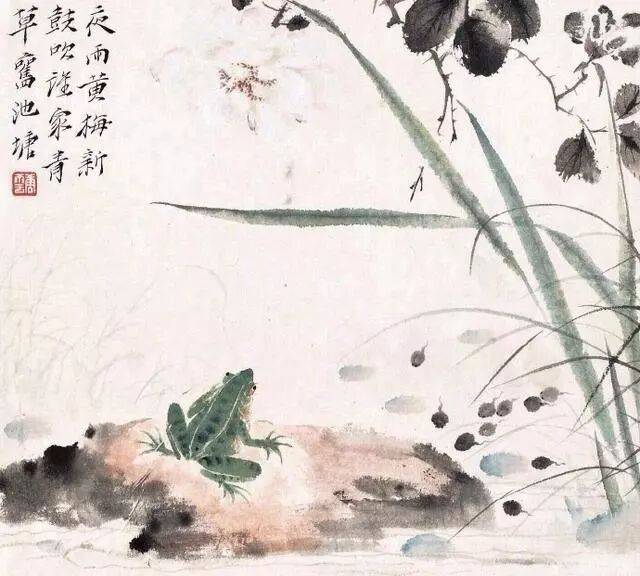 夜雨黄梅新
鼓吹誰家青
草舊池塘